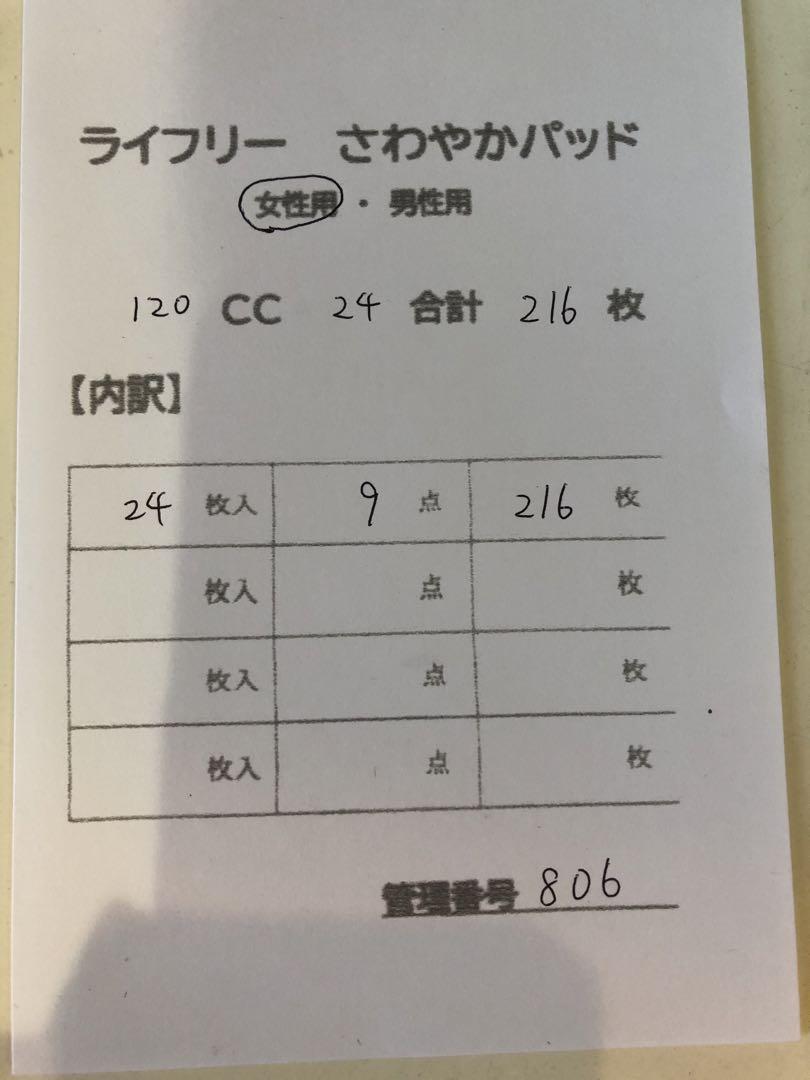 ライフリー　さわやかパッド
女性用・男性用
120 CC 24 合計 216 枚
【内訳】
24 枚入 9 点 216 枚
枚入 点 枚
枚入 点 枚
枚入 点 枚
管理番号 806